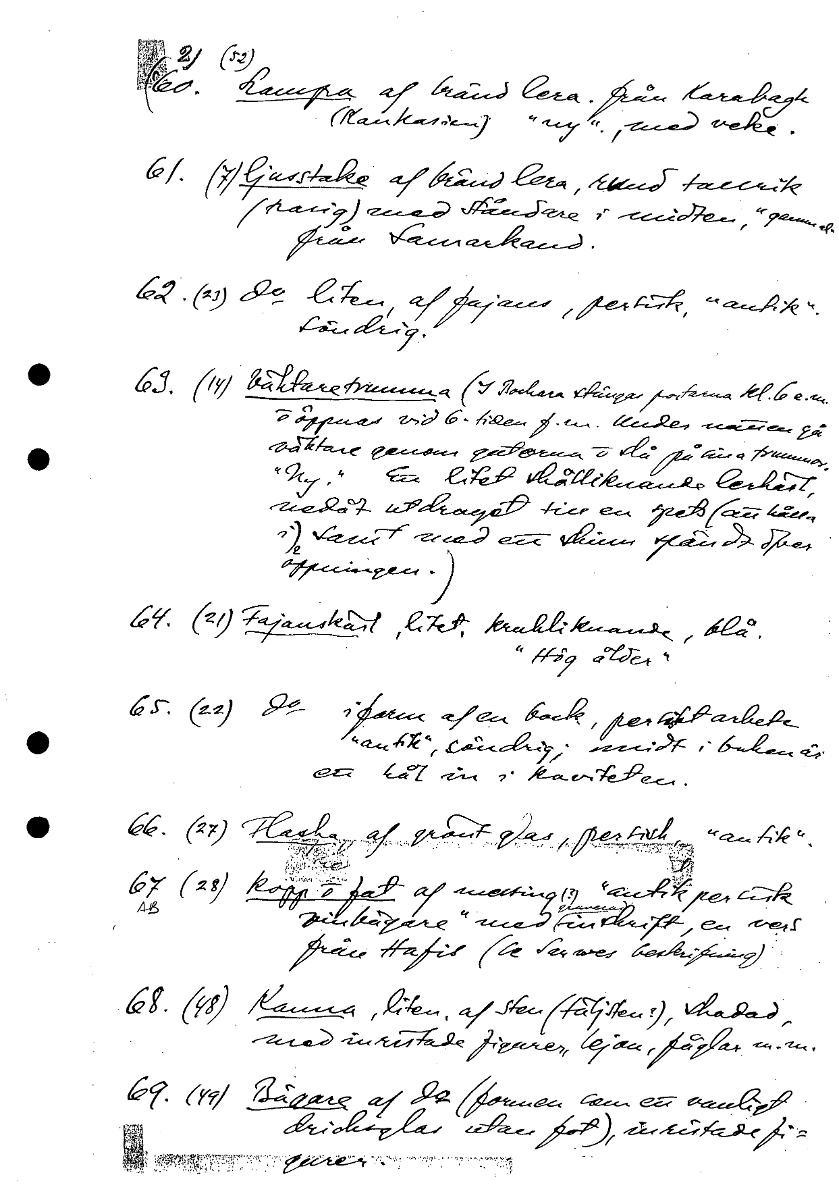 2) (52)
60. Lampa af bränd lera. från Karabagh
(Kaukasien) "ny"., med veke.
61. (7) ljusstake af bränd lera, rund tallrik
(trasig) med ståndare i midten, "gammal"
från Samarkand.
62. (23) do liten, af fajans, persisk, "antik".
Söndrig.
63. (14) Väktaretrumma (I Bochara stängas portarna kl. 6 e.m.
o öppnas vid 6-tiden f.m. Under natten gå
väktare genom gatorna o slå på sina trummor.
"Ny." En litet skålliknande lerkärl,
nedåt utdraget till en spets (att hålla
i), samt med ett skinn spändt öfver
öppningen.)
64. (21) Fajanskärl, litet, krukliknande, blå.
"Hög ålder"
65. (22) do i form af en bock, persiskt arbete
"antik", söndrig; midt i buken är
ett hål in i kaviteten.
66. (27) Flaska, af grönt glas, persisk, "antik".
67 (28) Kopp o fat af messing (?) "antik persisk
AB vinbägare" med inskrift, en vers
från Hafis (Se Sarwes beskrifning)
68. (48) Kanna, liten, af sten (täljsten?), skadad,
med inristade figurer, lejon, fåglar m.m.
69. (49) Bägare af do (formen som ett vanligt
dricksglas utan fot), inristade fi=
gurer.